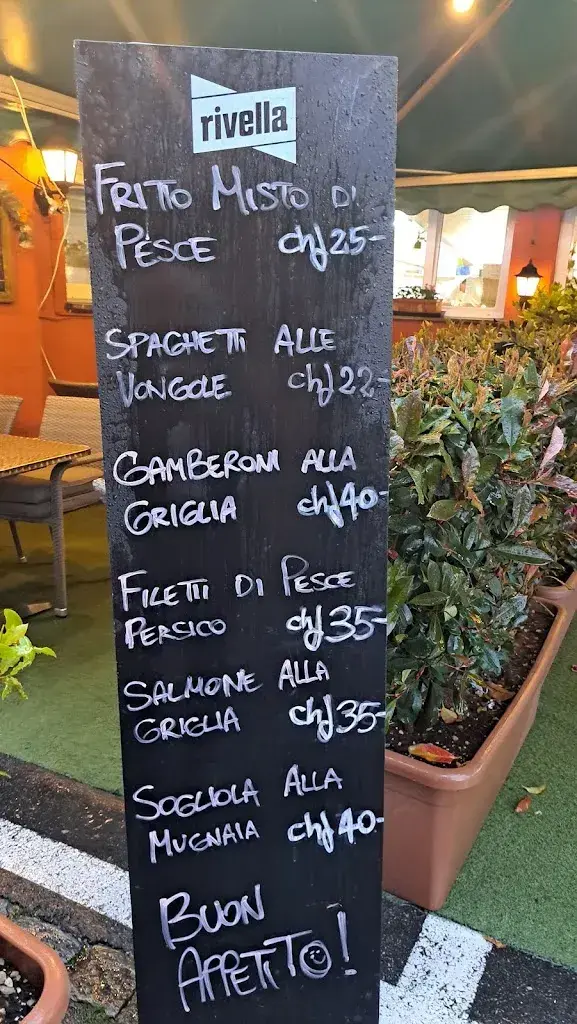 rivella
FRITTO MISTO DI
PESCE chf 25-
SPAGHETTI ALLE
VONGOLE chf 22-
GAMBERONI ALLA
GRIGLIA chf 40-
FILETTI DI PESCE
PERSICO chf 35-
SALMONE ALLA
GRIGLIA chf 35-
SOGLIOLA ALLA
MUGNAIA chf 40-
BUON
APPETITO!